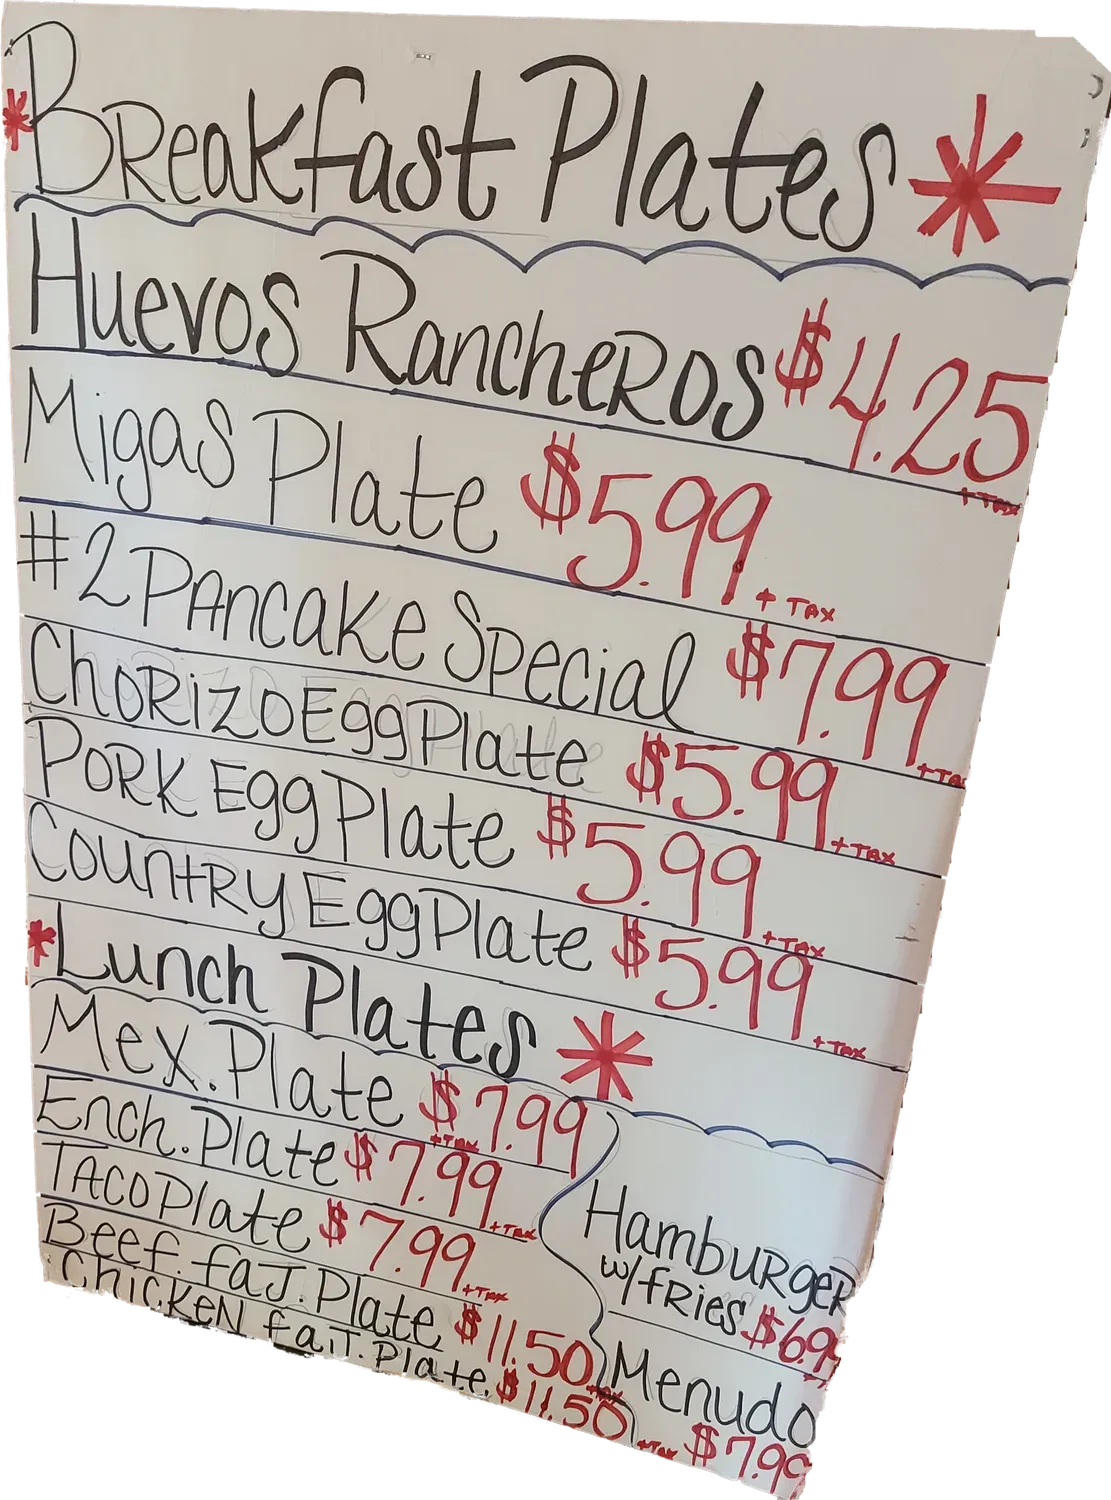 *Breakfast Plates*
Huevos Rancheros $4.25 +TAX
Migas Plate $5.99 +TAX
#2 Pancake Special $7.99 +TAX
Chorizo Egg Plate $5.99 +TAX
Pork Egg Plate $5.99 +TAX
Country Egg Plate $5.99 +TAX
*Lunch Plates*
Mex. Plate $7.99 +TAX
Ench. Plate $7.99 +TAX
Taco Plate $7.99 +TAX
Beef. faJ. Plate $11.50 +TAX
Chicken faJT. Plate $11.50 +TAX
Hamburger
w/fries $6.99
Menudo
$7.99